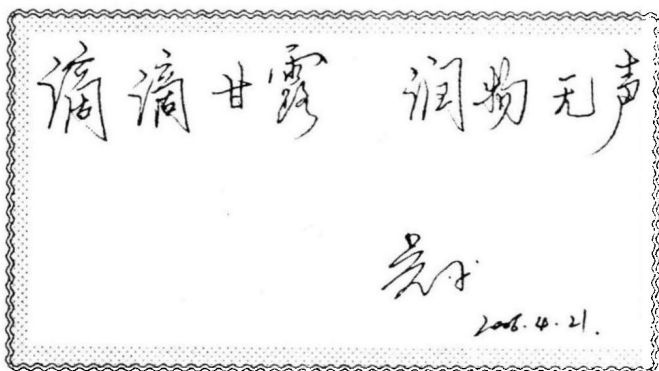 滴滴甘露 润物无声
2006.4.21.